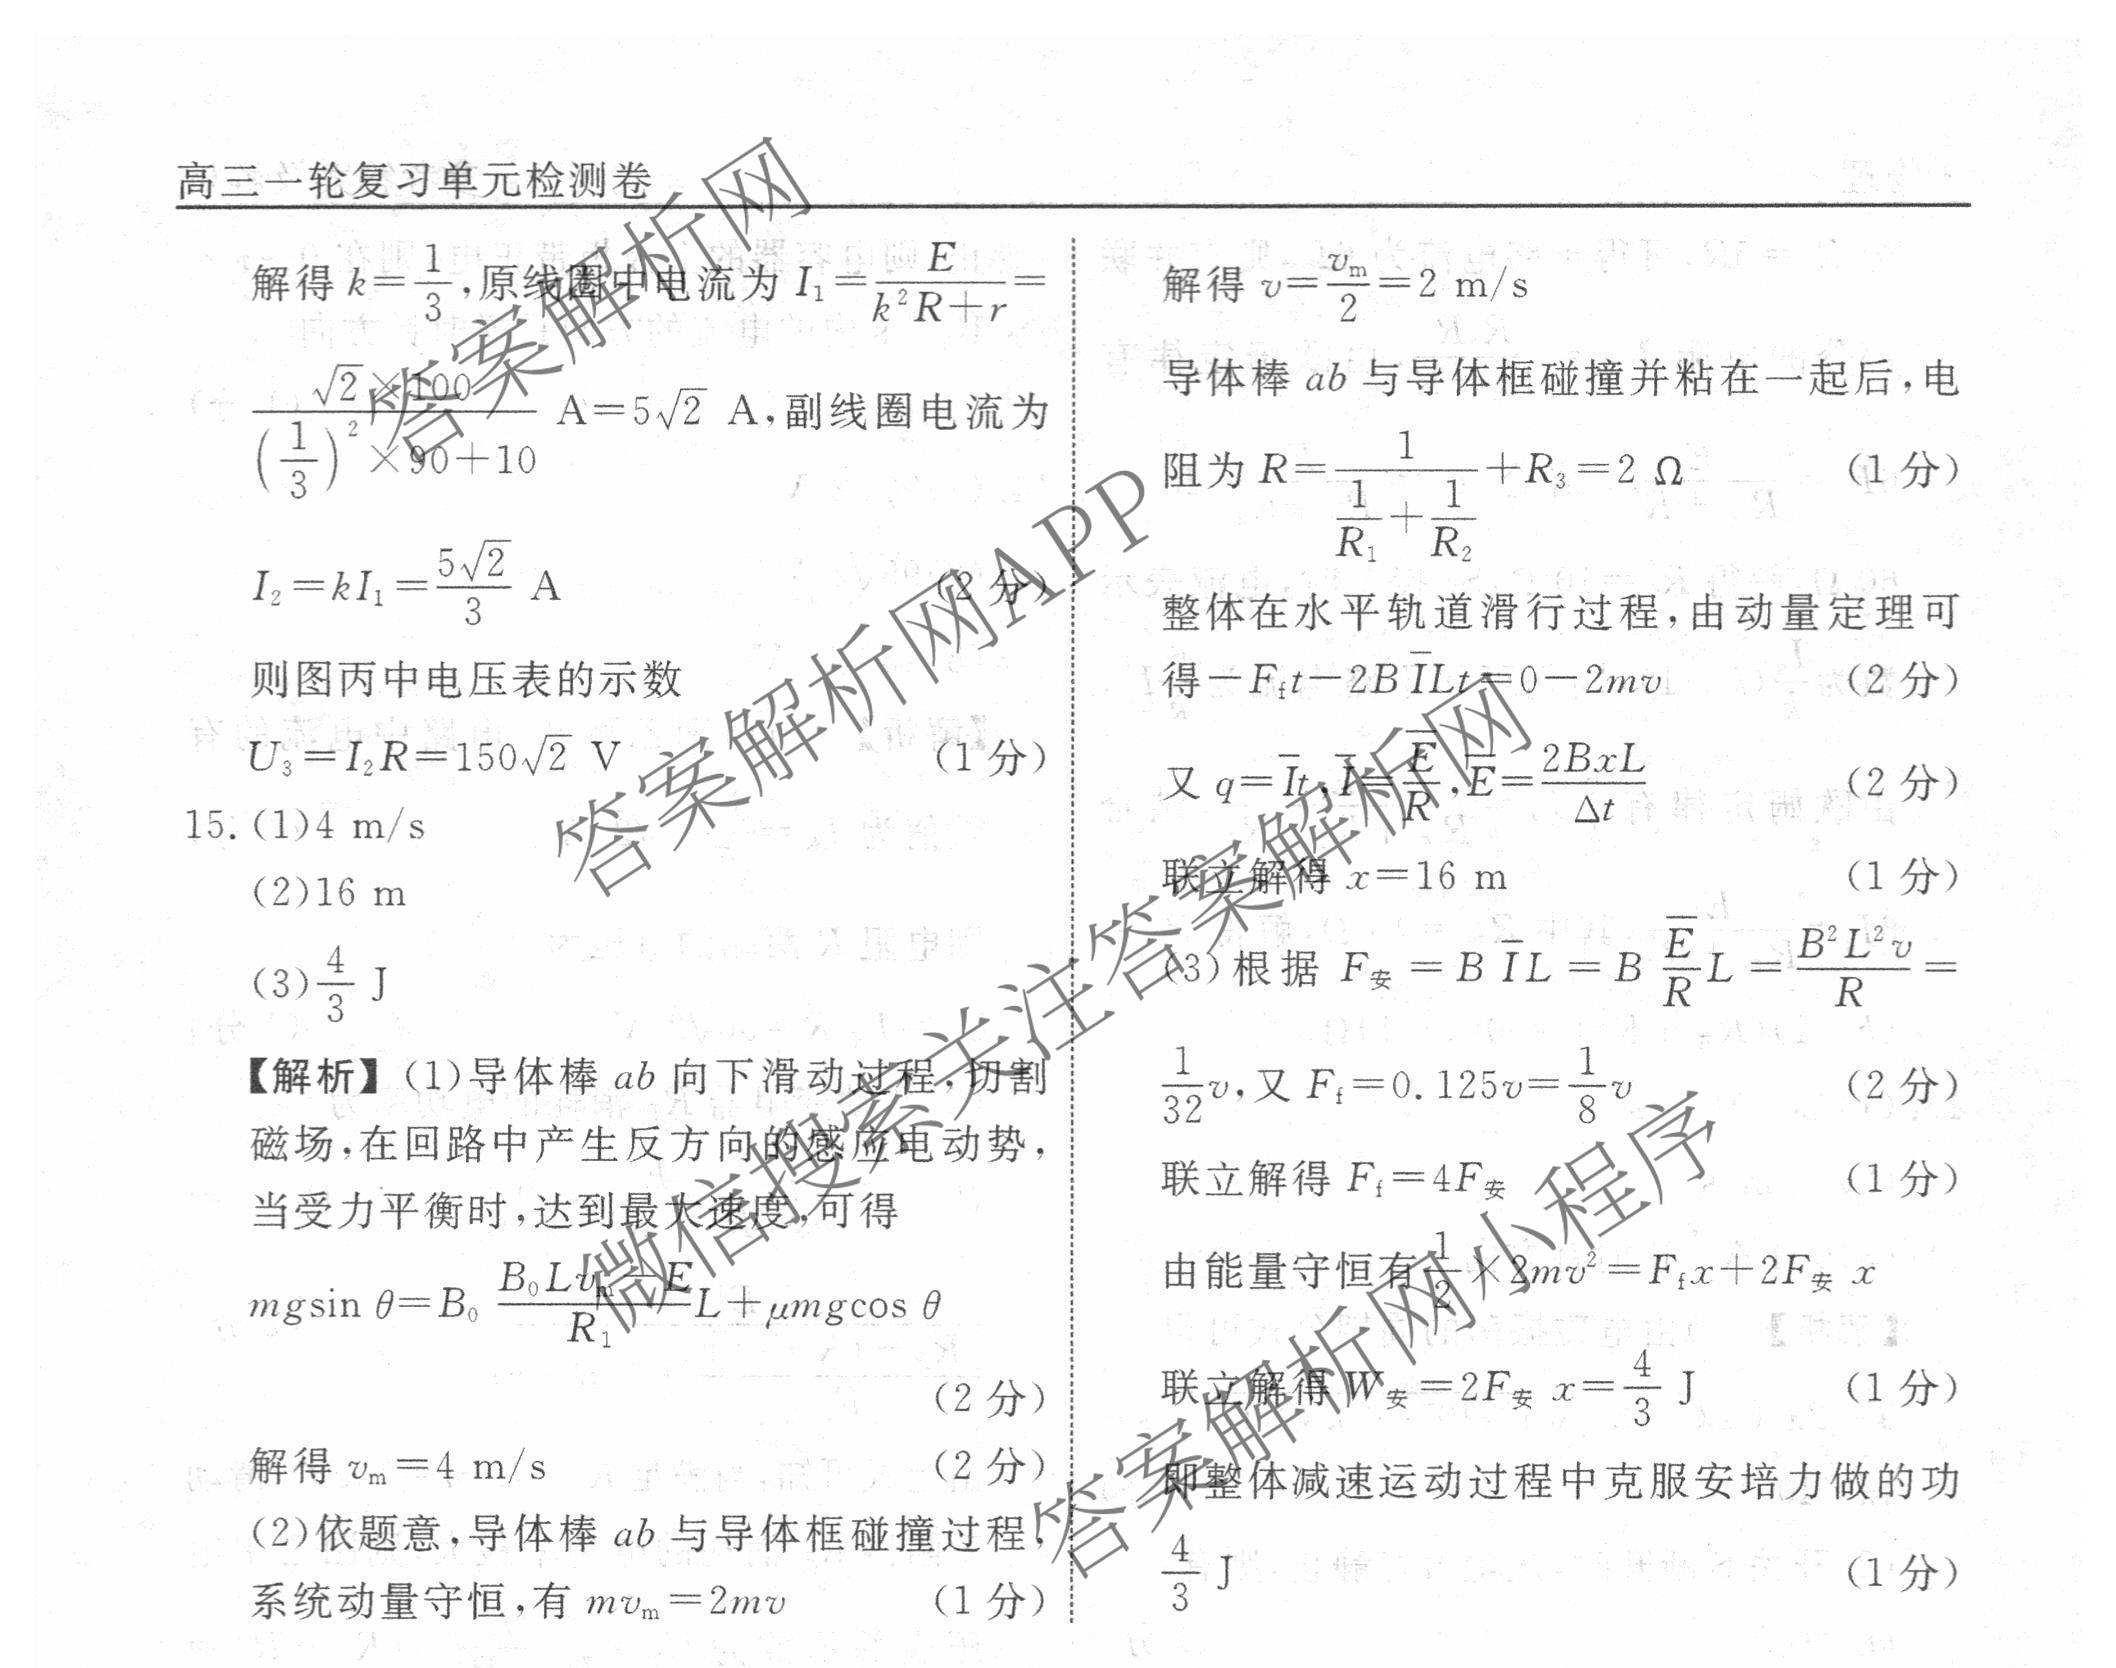 高三一轮复习单元检测卷
解得 k=1/3,原线圈中电流为 I₁=E/(k²R+r)=
(√2×100)/((1/3)²×90+10) A=5√2 A,副线圈电流为
I₂=kI₁=5√2/3 A (2分)
则图丙中电压表的示数
U₃=I₂R=150√2 V (1分)
15. (1)4 m/s
(2)16 m
(3)4/3 J
【解析】(1)导体棒 ab 向下滑动过程,切割
磁场,在回路中产生反方向的感应电动势,
当受力平衡时,达到最大速度,可得
mgsin θ=B₀ (B₀Lvₘ-E)/R₁ L+μmgcos θ
(2分)
解得 vₘ=4 m/s (2分)
(2)依题意,导体棒 ab 与导体框碰撞过程,
系统动量守恒,有 mvₘ=2mv (1分)
解得 v=vₘ/2=2 m/s
导体棒 ab 与导体框碰撞并粘在一起后,电
阻为 R=1/(1/R₁+1/R₂)+R₃=2 Ω (1分)
整体在水平轨道滑行过程,由动量定理可
得-F_f t-2BI̅Lt=0-2mv (2分)
又 q=I̅t,I̅=E̅/R,E̅=2BxL/Δt (2分)
联立解得 x=16 m (1分)
(3)根据 F安=BI̅L=B E̅/R L=B²L²v/R=
1/32 v,又 F_f=0.125v=1/8 v (2分)
联立解得 F_f=4F安 (1分)
由能量守恒有 1/2×2mv²=F_f x+2F安 x
联立解得 W安=2F安 x=4/3 J (1分)
即整体减速运动过程中克服安培力做的功
4/3 J (1分)
答案解析网
答案解析网APP
微信搜索关注答案解析网
答案解析网小程序